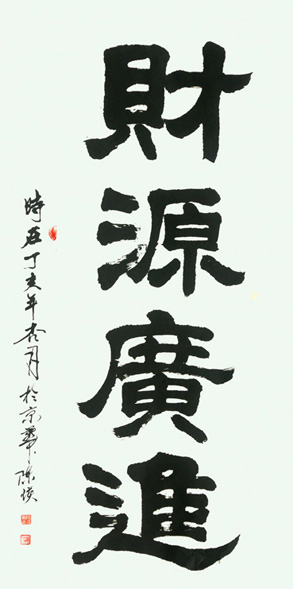 財源廣進
時在丁亥年杏月於京華陳俊